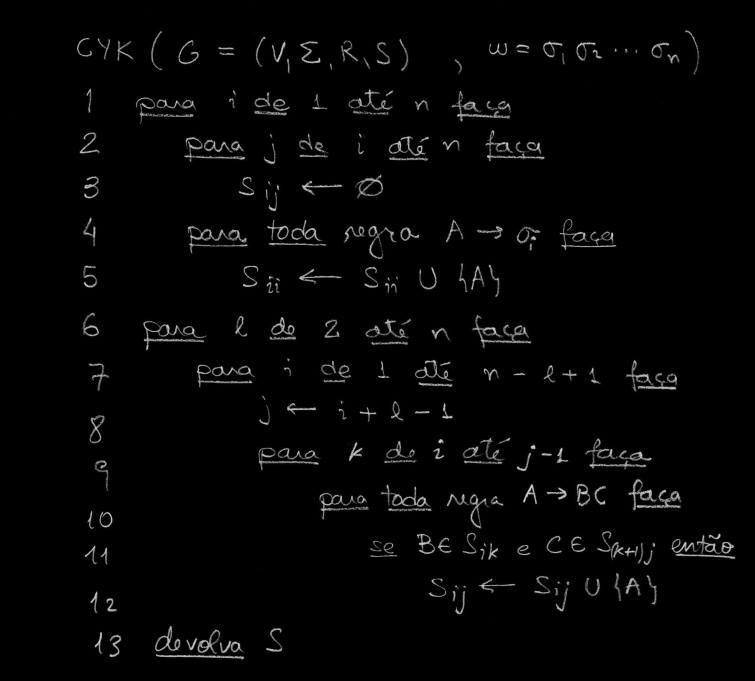 CYK ( G = (V, Σ, R, S) , w = σ₁ σ₂ ⋯ σₙ )
1 para i de 1 até n faça
2 para j de i até n faça
3 Sᵢⱼ ← ∅
4 para toda regra A → σᵢ faça
5 Sᵢᵢ ← Sᵢᵢ ∪ {A}
6 para l de 2 até n faça
7 para i de 1 até n - l + 1 faça
8 j ← i + l - 1
9 para k de i até j-1 faça
10 para toda regra A → BC faça
11 se B ∈ Sᵢₖ e C ∈ S₍ₖ₊₁₎ⱼ então
12 Sᵢⱼ ← Sᵢⱼ ∪ {A}
13 devolva S